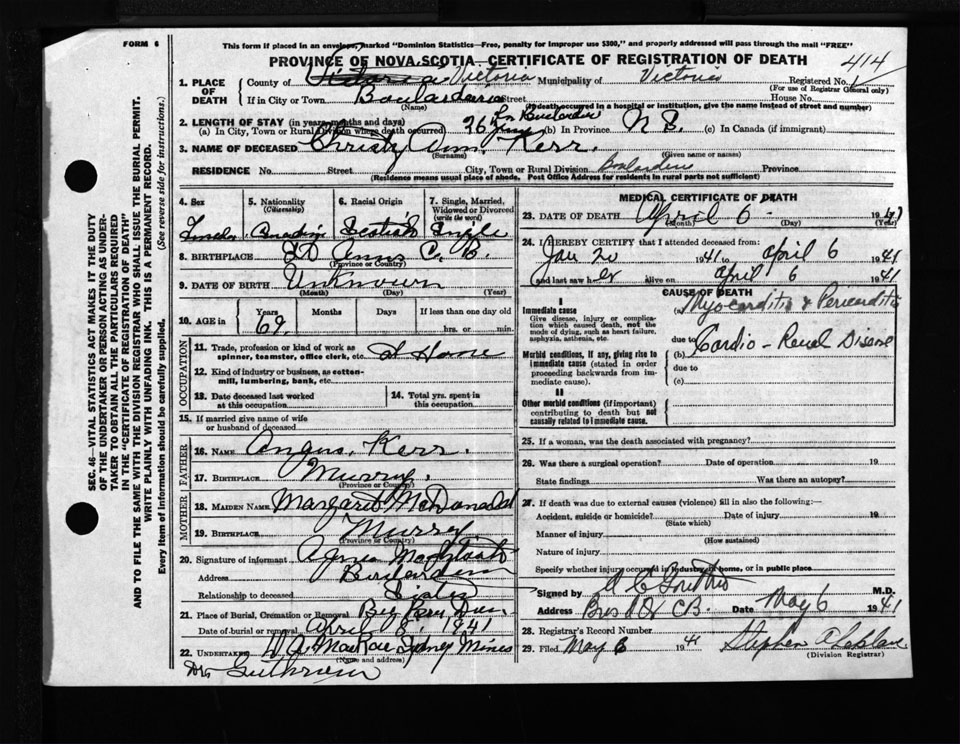 FORM 6
This form if placed in an envelope, marked "Dominion Statistics—Free, penalty for improper use $300," and properly addressed will pass through the mail "FREE"
PROVINCE OF NOVA SCOTIA—CERTIFICATE OF REGISTRATION OF DEATH
414
1. PLACE OF DEATH County of Victoria Municipality of Victoria Registered No. 1
(For use of Registrar General only)
If in City or Town Boularderie Street House No.
(Name) (If death occurred in a hospital or institution, give the name instead of street and number)
2. LENGTH OF STAY (in years, months and days)
(a) In City, Town or Rural Division where death occurred 26 In Boularderie (b) In Province N S. (c) In Canada (if immigrant)
3. NAME OF DECEASED Christy Ann Kerr.
(Surname) (Given name or names)
RESIDENCE No. Street City, Town or Rural Division Province
(Residence means usual place of abode. Post Office Address for residents in rural parts not sufficient)
SEC. 46—VITAL STATISTICS ACT MAKES IT THE DUTY
OF THE UNDERTAKER OR PERSON ACTING AS UNDER-
TAKER TO OBTAIN ALL THE PARTICULARS REQUIRED
IN THE "CERTIFICATE OF REGISTRATION OF DEATH"
AND TO FILE THE SAME WITH THE DIVISION REGISTRAR WHO SHALL ISSUE THE BURIAL PERMIT.
WRITE PLAINLY WITH UNFADING INK. THIS IS A PERMANENT RECORD.
Every item of information should be carefully supplied. (See reverse side for instructions.)
4. Sex
5. Nationality (Citizenship)
6. Racial Origin
7. Single, Married, Widowed or Divorced (write the word)
Female Canadian Scotish Single
8. BIRTHPLACE St Anns C. B.
(Province or Country)
9. DATE OF BIRTH Unknown
(Month) (Day) (Year)
10. AGE in Years Months Days If less than one day
69 hrs. or min.
OCCUPATION
11. Trade, profession or kind of work as spinner, teamster, office clerk, etc. At Home
12. Kind of industry or business, as cotton-mill, lumbering, bank, etc.
13. Date deceased last worked at this occupation
14. Total yrs. spent in this occupation
15. If married give name of wife or husband of deceased
FATHER
16. NAME Angus Kerr.
17. BIRTHPLACE
(Province or Country)
MOTHER
18. MAIDEN NAME Margaret McDonald
19. BIRTHPLACE
(Province or Country)
20. Signature of informant
Address Boularderie
Relationship to deceased Sister
21. Place of Burial, Cremation or Removal
Date of burial or removal April 8, 1941
22. UNDERTAKER D A MacKae Sydney Mines
(Name and address)
MEDICAL CERTIFICATE OF DEATH
23. DATE OF DEATH April 6 1941
(Month) (Day) (Year)
24. I HEREBY CERTIFY that I attended deceased from:
Jan 20 1941 to April 6 1941
and last saw her alive on April 6 1941
CAUSE OF DEATH
I
Immediate cause
Give disease, injury or complication which caused death, not the mode of dying, such as heart failure, asphyxia, asthenia, etc.
Myocarditis & Pericarditis
due to
Morbid conditions, if any, giving rise to immediate cause (stated in order proceeding backwards from immediate cause).
(b) Cardio-Renal Disease
due to
(c)
II
Other morbid conditions (if important) contributing to death but not causally related to immediate cause.
25. If a woman, was the death associated with pregnancy?
26. Was there a surgical operation? Date of operation 19
State findings Was there an autopsy?
27. If death was due to external causes (violence) fill in also the following:—
Accident, suicide or homicide? Date of injury 19
(State which)
Manner of injury
(How sustained)
Nature of injury
Specify whether injury occurred in industry, in home, or in public place
Signed by M.D.
Address Date May 6 1941
28. Registrar's Record Number
29. Filed May 6 1941 Stephen
(Division Registrar)